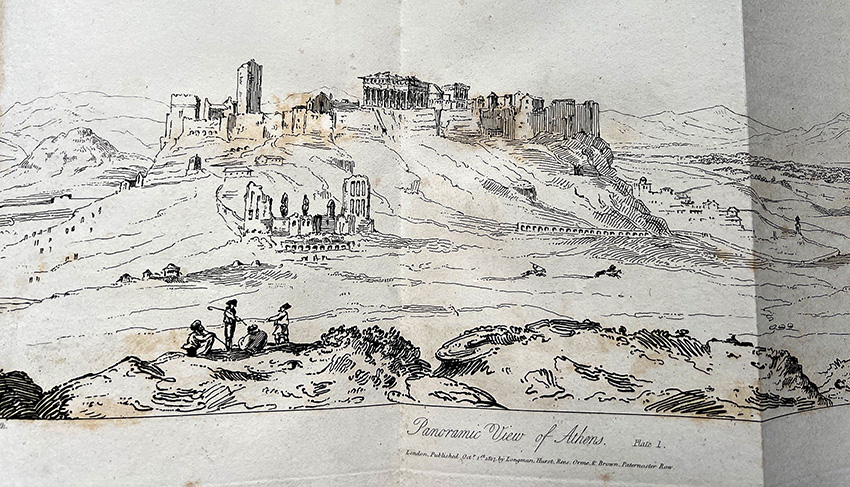 Panoramic View of Athens. Plate 1.
London, Published Oct.r 1st 1813, by Longman, Hurst, Rees, Orme, & Brown, Paternoster Row.